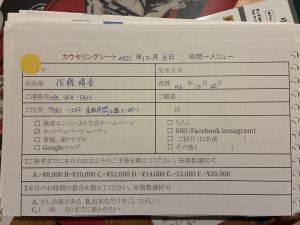 カウセリングシート 2021年12月8日 時間ーメニュー
生年月日
お名前 西暦
ご連絡先 ご職業
ご住所 〒 区
□ 検索エンジンより当店ホームページ □ ちらし
☑ ホットペッパービューティ □ SNS (Facebook.instagram)
□ 看板、通りすがり □ ご紹介(お名前 )
□ Googleマップ □ その他( )
2ご参考までに本日のおおよそのご予算を教えてください。※複数選択可
A.~¥8,000 B~¥10,000 C.~¥12,000 D.~¥14,000 E.~15,000 F.~¥20.000
3本日のお時間の都合を教えてください。※複数選択可
A, 少し余裕がある B,出来るだけ早くしてほしい
C,( 時 分)までに終わりたい